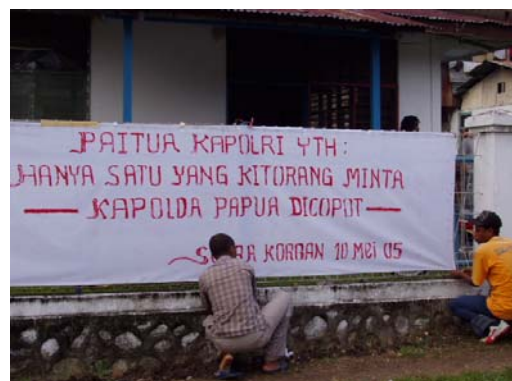 PAITUA KAPOLRI YTH:
HANYA SATU YANG KITORANG MINTA
KAPOLDA PAPUA DICOPOT
KORBAN 10 MEI 05